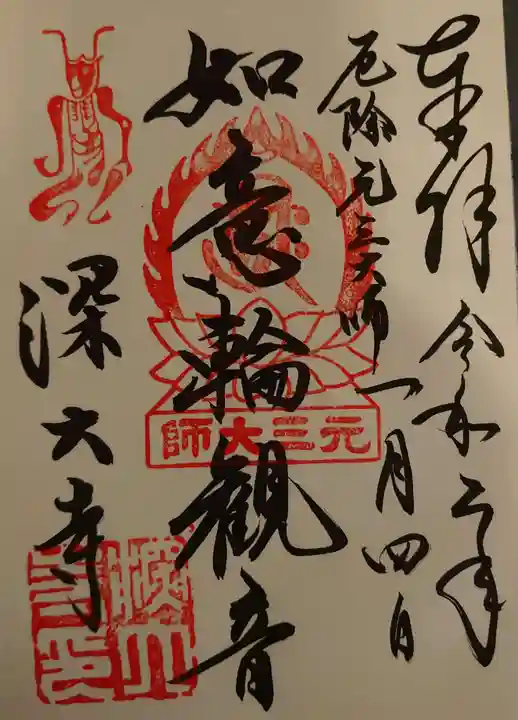 奉拝 令和二年
厄除元三大師 一月四日
如意輪観音
師大三元
深大寺